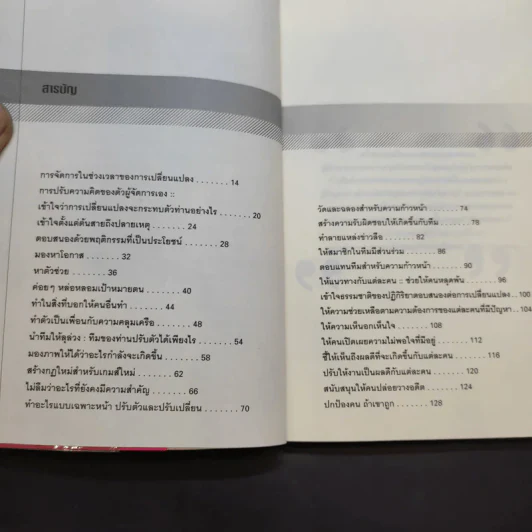 สารบัญ
การจัดการในช่วงเวลาของการเปลี่ยนแปลง ....... 14
การปรับความคิดของตัวผู้จัดการเอง ::
เข้าใจว่าการเปลี่ยนแปลงจะกระทบตัวท่านอย่างไร ....... 20
เข้าใจตั้งแต่ต้นสายถึงปลายเหตุ ....... 24
ตอบสนองด้วยพฤติกรรมที่เป็นประโยชน์ ....... 28
มองหาโอกาส ....... 32
หาตัวช่วย ....... 36
ค่อยๆ หล่อหลอมเป้าหมายตน ....... 40
ทำในสิ่งที่บอกให้คนอื่นทำ ....... 44
ทำตัวเป็นเพื่อนกับความคลุมเครือ ....... 48
นำทีมให้ลุล่วง : ทีมของท่านปรับตัวได้เพียงไร ....... 54
มองภาพให้ได้ว่าอะไรกำลังจะเกิดขึ้น ....... 58
สร้างกฎใหม่สำหรับเกมส์ใหม่ ....... 62
ไม่ลืมว่าอะไรที่ยังคงมีความสำคัญ ....... 66
ทำอะไรแบบเฉพาะหน้า ปรับตัวและปรับเปลี่ยน ....... 70
วัดและฉลองสำหรับความก้าวหน้า ....... 74
สร้างความรับผิดชอบให้เกิดขึ้นกับทีม ....... 78
ทำลายแหล่งข่าวลือ ....... 82
ให้สมาชิกในทีมมีส่วนร่วม ....... 86
ตอบแทนทีมสำหรับความก้าวหน้า ....... 90
ให้แนวทางกับแต่ละคน :: ช่วยให้คนหลุดพ้น ....... 96
เข้าใจธรรมชาติของปฏิกิริยาตอบสนองต่อการเปลี่ยนแปลง .... 100
ให้ความช่วยเหลือตามความต้องการของแต่ละคนที่มีปัญหา .... 104
ให้ความเห็นอกเห็นใจ ....... 108
ให้คนเปิดเผยความไม่พอใจที่มีอยู่ ....... 112
ชี้ให้เห็นถึงผลดีที่จะเกิดขึ้นกับแต่ละคน ....... 116
ปรับให้งานเป็นผลดีกับแต่ละคน ....... 120
สนับสนุนให้คนปล่อยวางอดีต ....... 124
ปกป้องคน ถ้าเขาถูก ....... 128